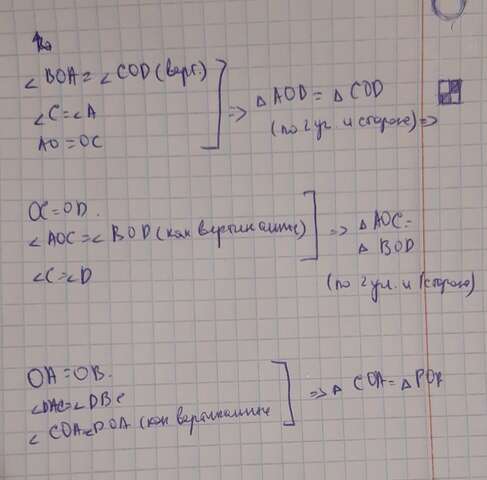 ∠BOA = ∠COD (верт.)
∠C = ∠A
AO = OC
=> △AOD = △COD
(по 2 уг. и стороне) =>
OC = OD.
∠AOC = ∠BOD (как вертикальные)
∠C = ∠D
=> △AOC =
△BOD
(по 2 угл. и 1 стороне)
OA = OB.
∠DAC = ∠DBC
∠COA = ∠DOA (как вертикальные
=> △ COA = △